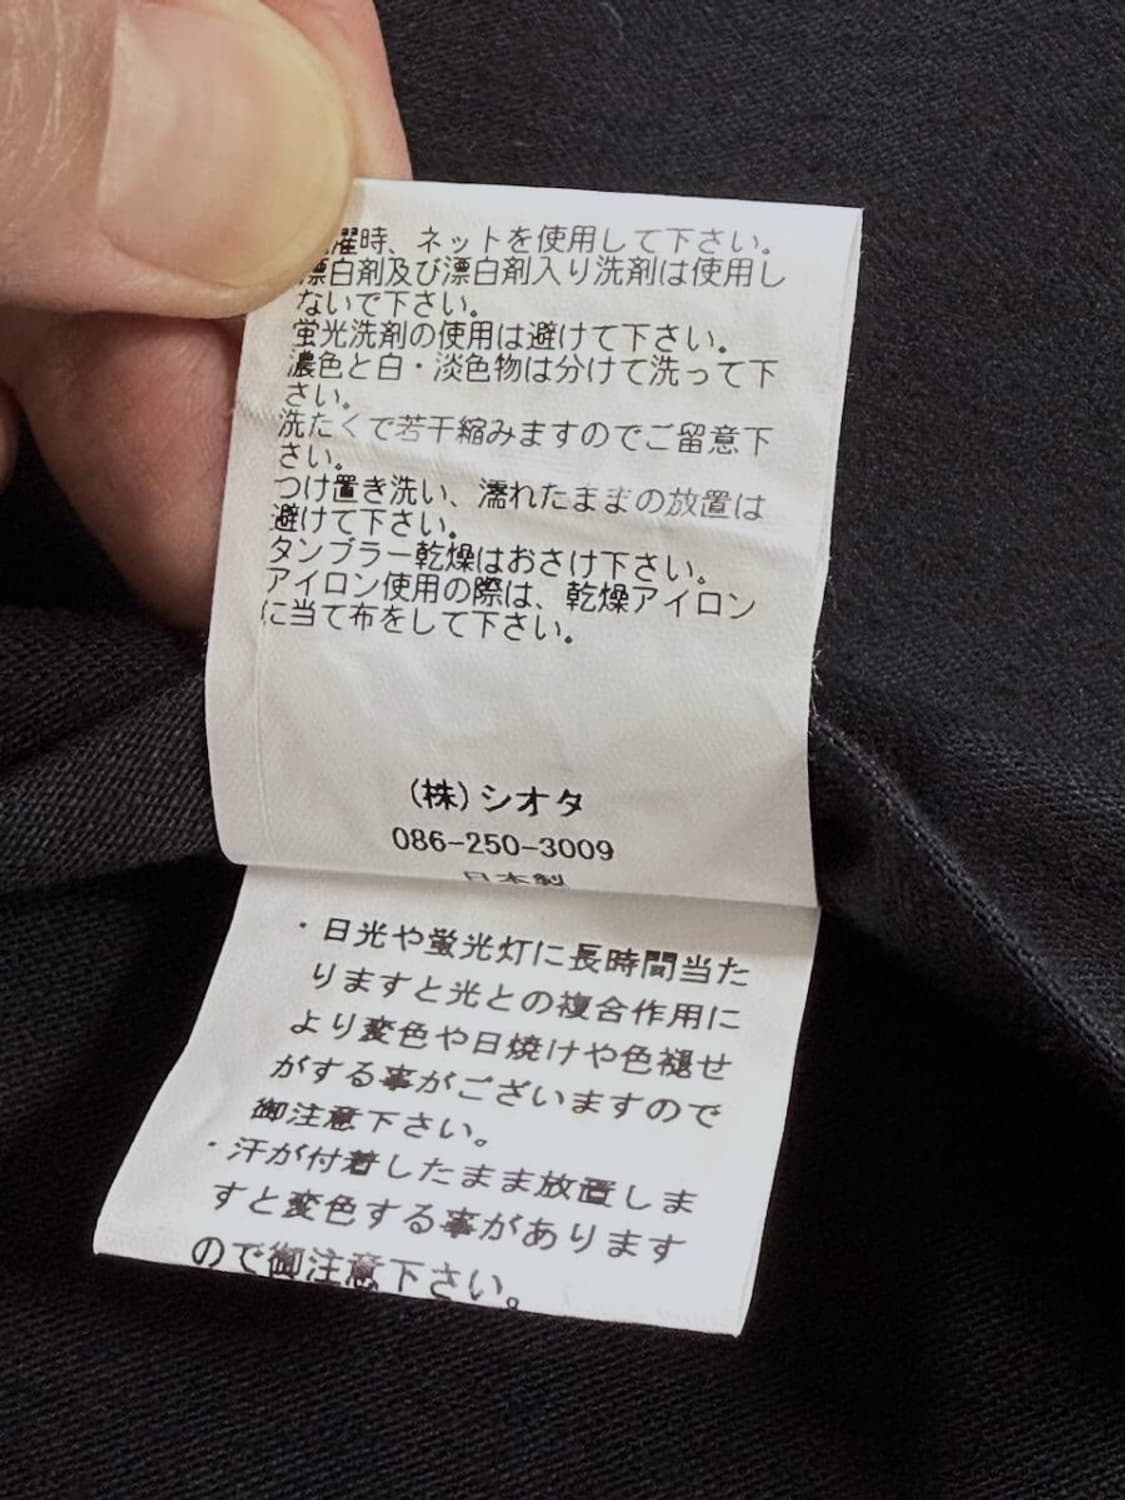 濯時、ネットを使用して下さい。
漂白剤及び漂白剤入り洗剤は使用し
ないで下さい。
蛍光洗剤の使用は避けて下さい。
濃色と白・淡色物は分けて洗って下
さい。
洗たくで若干縮みますのでご留意下
さい。
つけ置き洗い、濡れたままの放置は
避けて下さい。
タンブラー乾燥はおさけ下さい。
アイロン使用の際は、乾燥アイロン
に当て布をして下さい。
(株)シオタ
086-250-3009
日本製
・日光や蛍光灯に長時間当た
りますと光との複合作用に
より変色や日焼けや色褪せ
がする事がございますので
御注意下さい。
・汗が付着したまま放置しま
すと変色する事があります
ので御注意下さい。